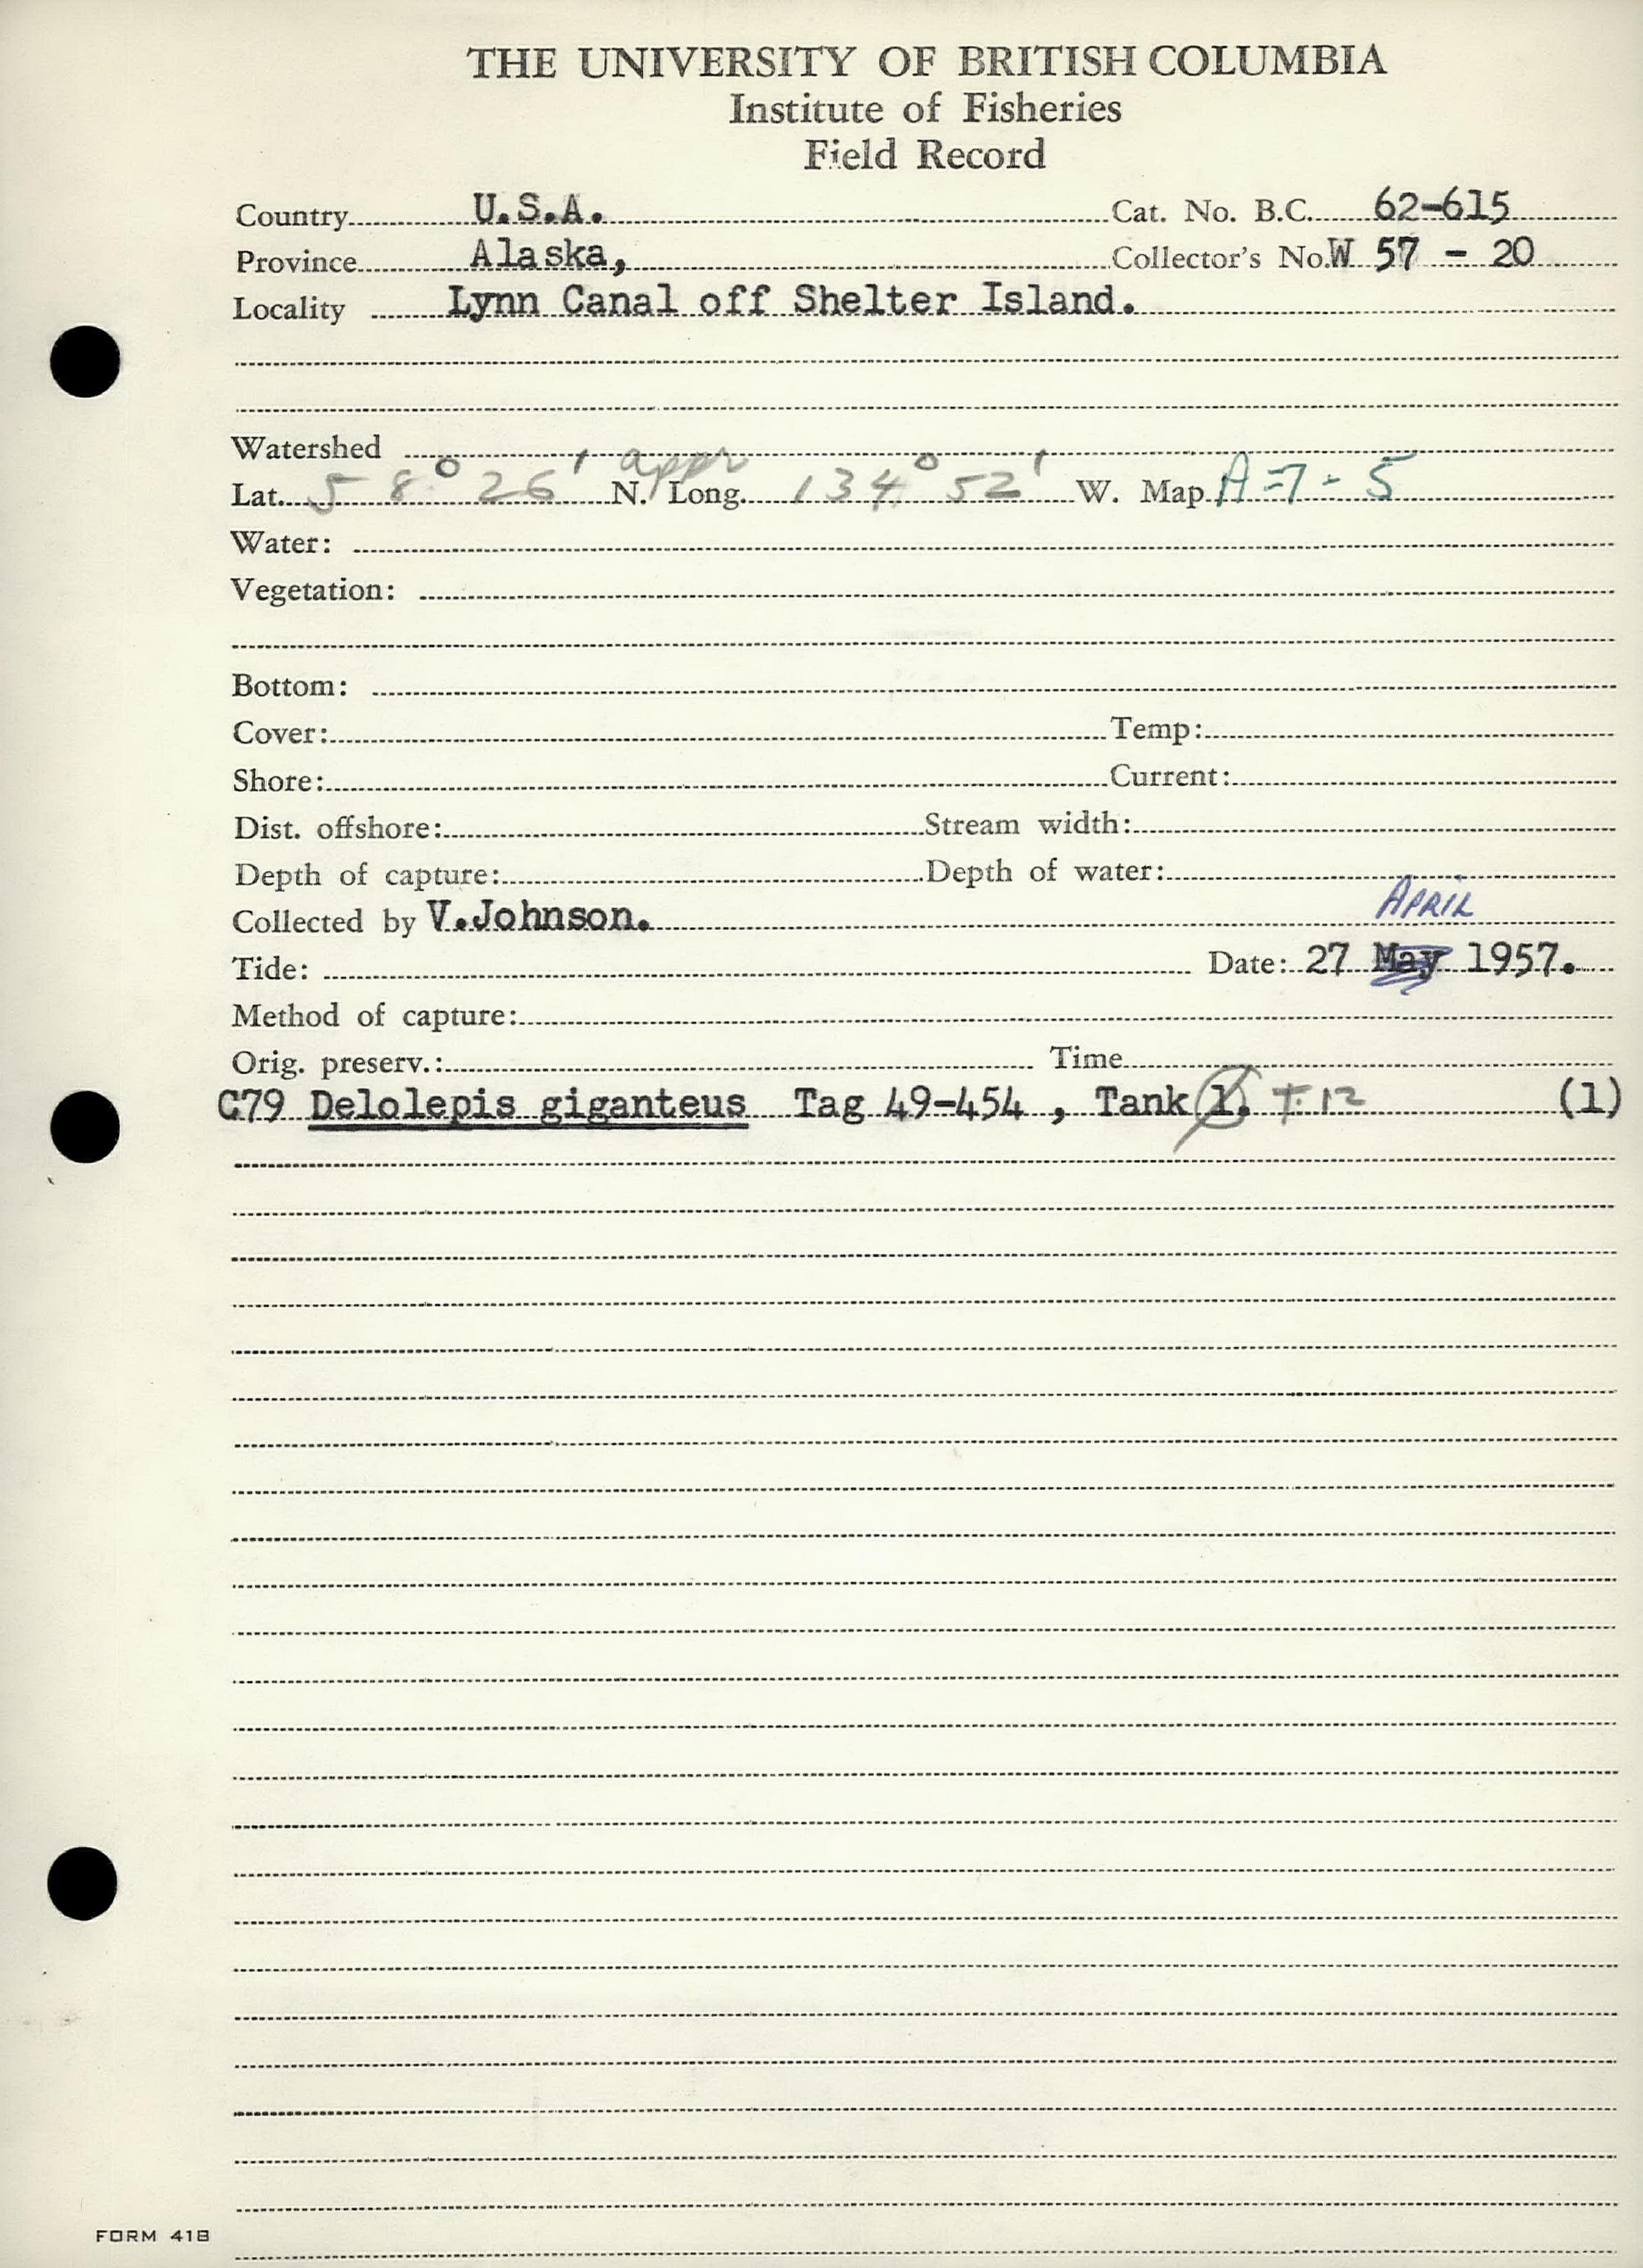 THE UNIVERSITY OF BRITISH COLUMBIA
Institute of Fisheries
Field Record
Country U.S.A. Cat. No. B.C. 62-615
Province Alaska, Collector's No. W 57 - 20
Locality Lynn Canal off Shelter Island.
Watershed
Lat. 58° 26' N. appr Long. 134° 52' W. Map A-7-5
Water:
Vegetation:
Bottom:
Cover: Temp:
Shore: Current:
Dist. offshore: Stream width:
Depth of capture: Depth of water:
APRIL
Collected by V.Johnson.
Tide: Date: 27 May 1957.
Method of capture:
Orig. preserv.: Time
C79 Delolepis giganteus Tag 49-454 , Tank 1. T. 12 (1)
FORM 41B